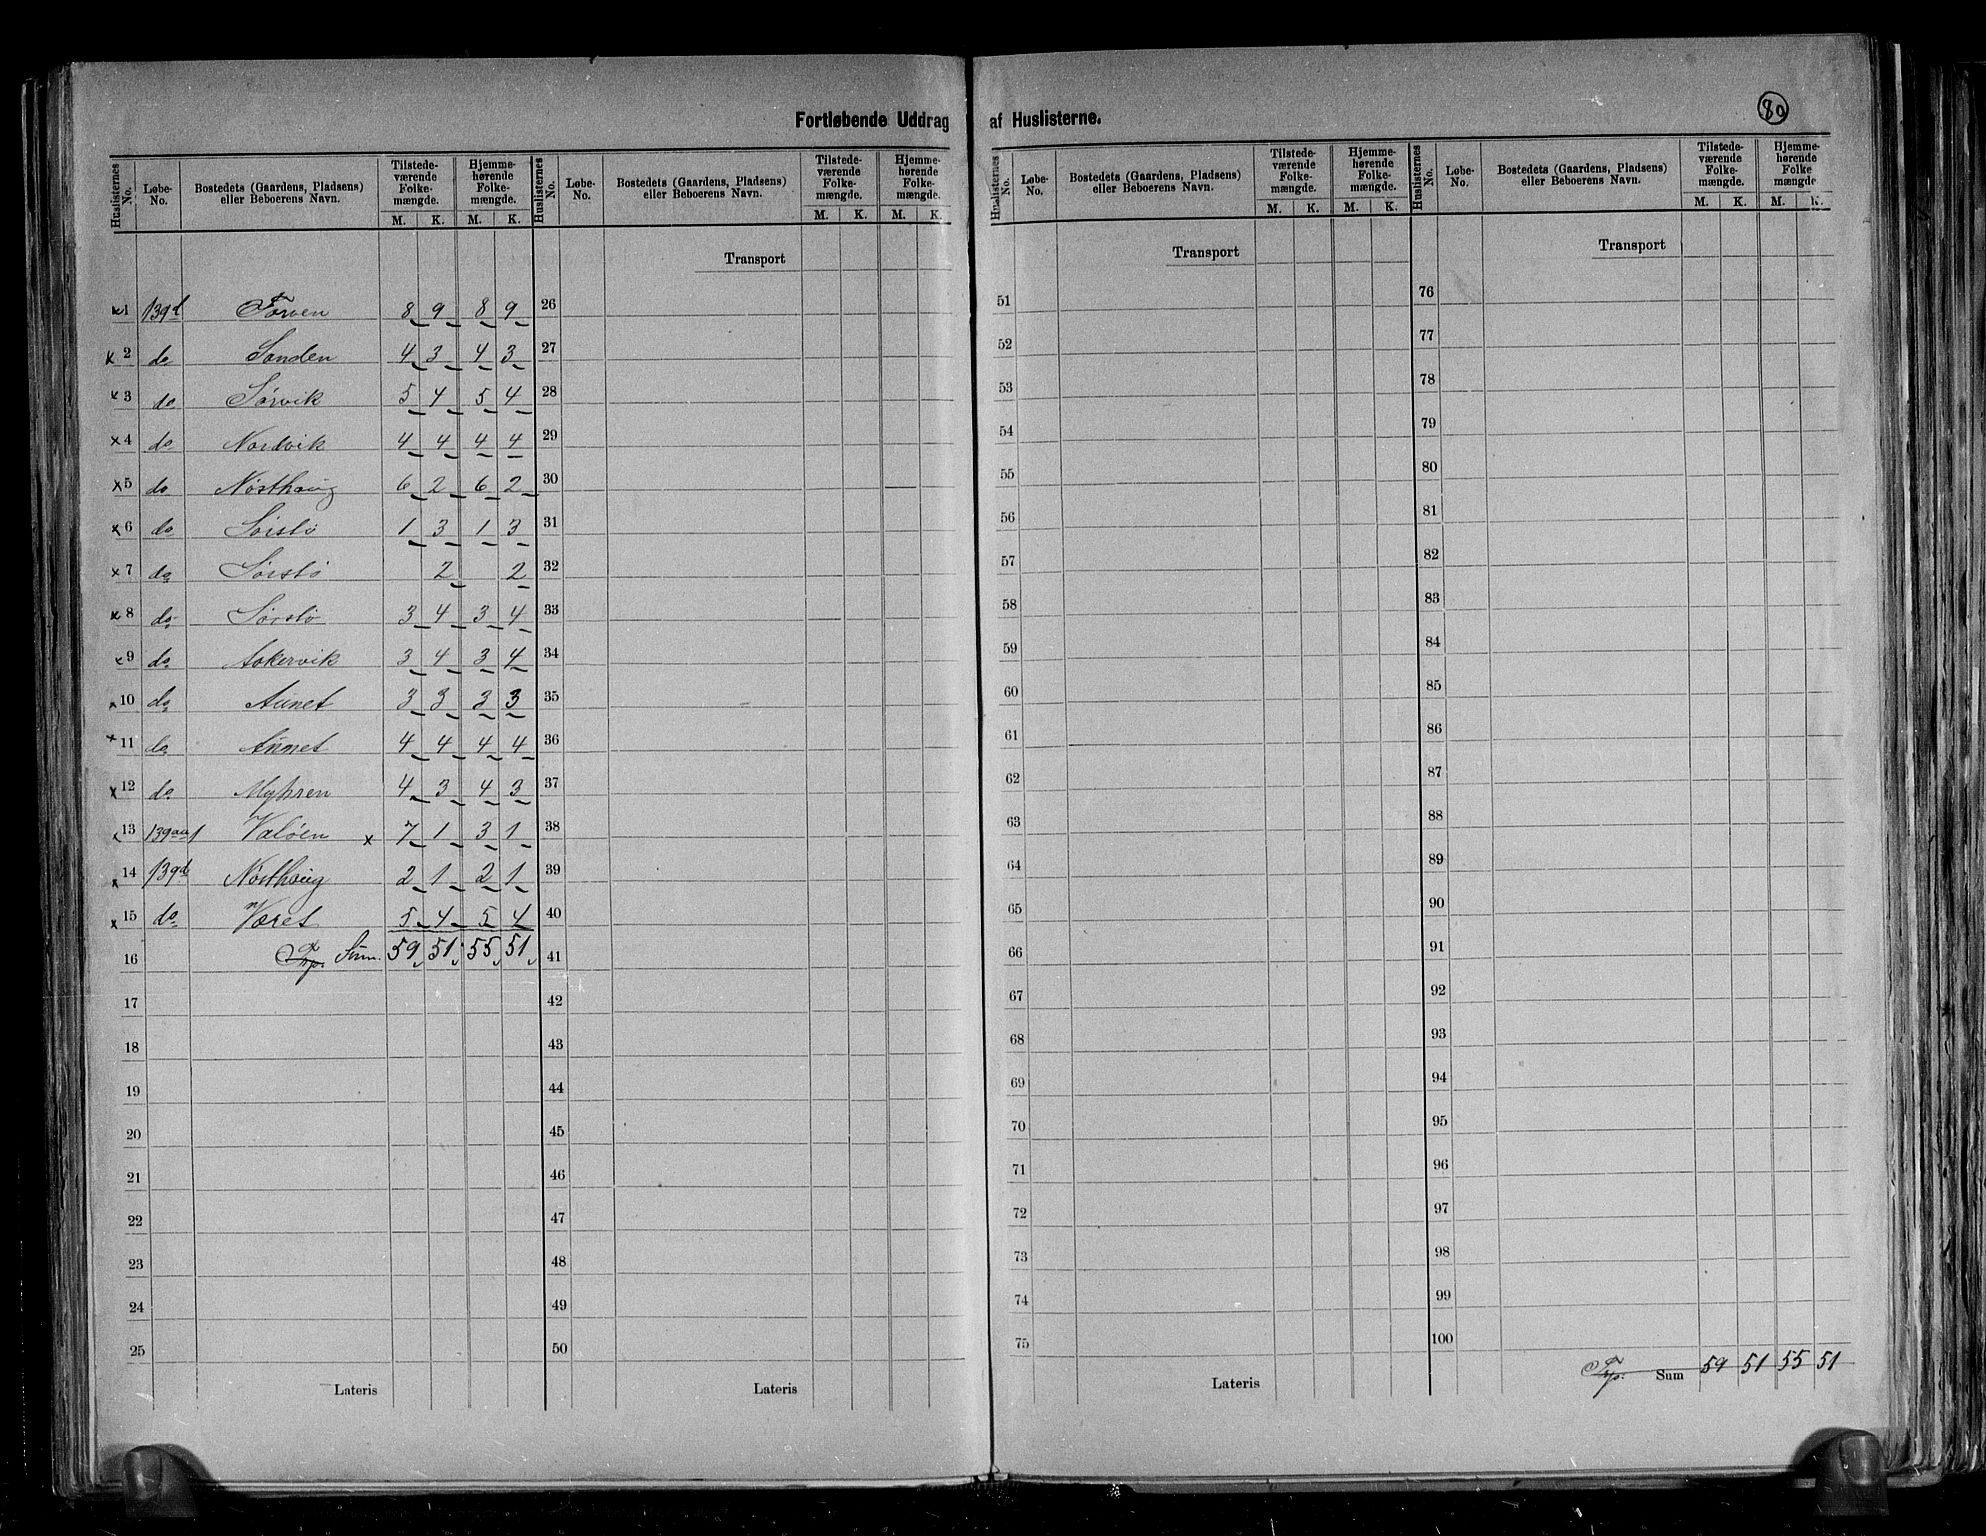 80
Fortløbende Uddrag af Huslisterne.
Huslisternes No. Løbe-No. Bostedets (Gaardens, Pladsens) eller Beboerens Navn. Tilstede-værende Folke-mængde. M. K. Hjemme-hørende Folke-mængde. M. K.
Huslisternes No. Løbe-No. Bostedets (Gaardens, Pladsens) eller Beboerens Navn. Tilstede-værende Folke-mængde. M. K. Hjemme-hørende Folke-mængde. M. K.
Transport
x 1 139d Torven 8 9 8 9 26
x 2 do Sanden 4 3 4 3 27
x 3 do Sørvik 5 4 5 4 28
x 4 do Nordvik 4 4 4 4 29
x 5 do Nøsthaug 6 2 6 2 30
x 6 do Sørstø 1 3 1 3 31
x 7 do Sørstø 2 2 32
x 8 do Sørstø 3 4 3 4 33
x 9 do Aakervik 3 4 3 4 34
x 10 do Aunet 3 3 3 3 35
x 11 do Aunet 4 4 4 4 36
x 12 do Myhren 4 3 4 3 37
x 13 139 Valøen x 7 1 3 1 38
x 14 139d Nøsthaug 2 1 2 1 39
x 15 do Været 5 4 5 4 40
16 Sum. 59 51 55 51 41
17 42
18 43
19 44
20 45
21 46
22 47
23 48
24 49
25 50
Lateris Lateris
Huslisternes No. Løbe-No. Bostedets (Gaardens, Pladsens) eller Beboerens Navn. Tilstede-værende Folke-mængde. M. K. Hjemme-hørende Folke-mængde. M. K.
Huslisternes No. Løbe-No. Bostedets (Gaardens, Pladsens) eller Beboerens Navn. Tilstede-værende Folke-mængde. M. K. Hjemme-hørende Folke mængde. M. K.
Transport Transport
51 76
52 77
53 78
54 79
55 80
56 81
57 82
58 83
59 84
60 85
61 86
62 87
63 88
64 89
65 90
66 91
67 92
68 93
69 94
70 95
71 96
72 97
73 98
74 99
75 100
Lateris Sum 59 51 55 51